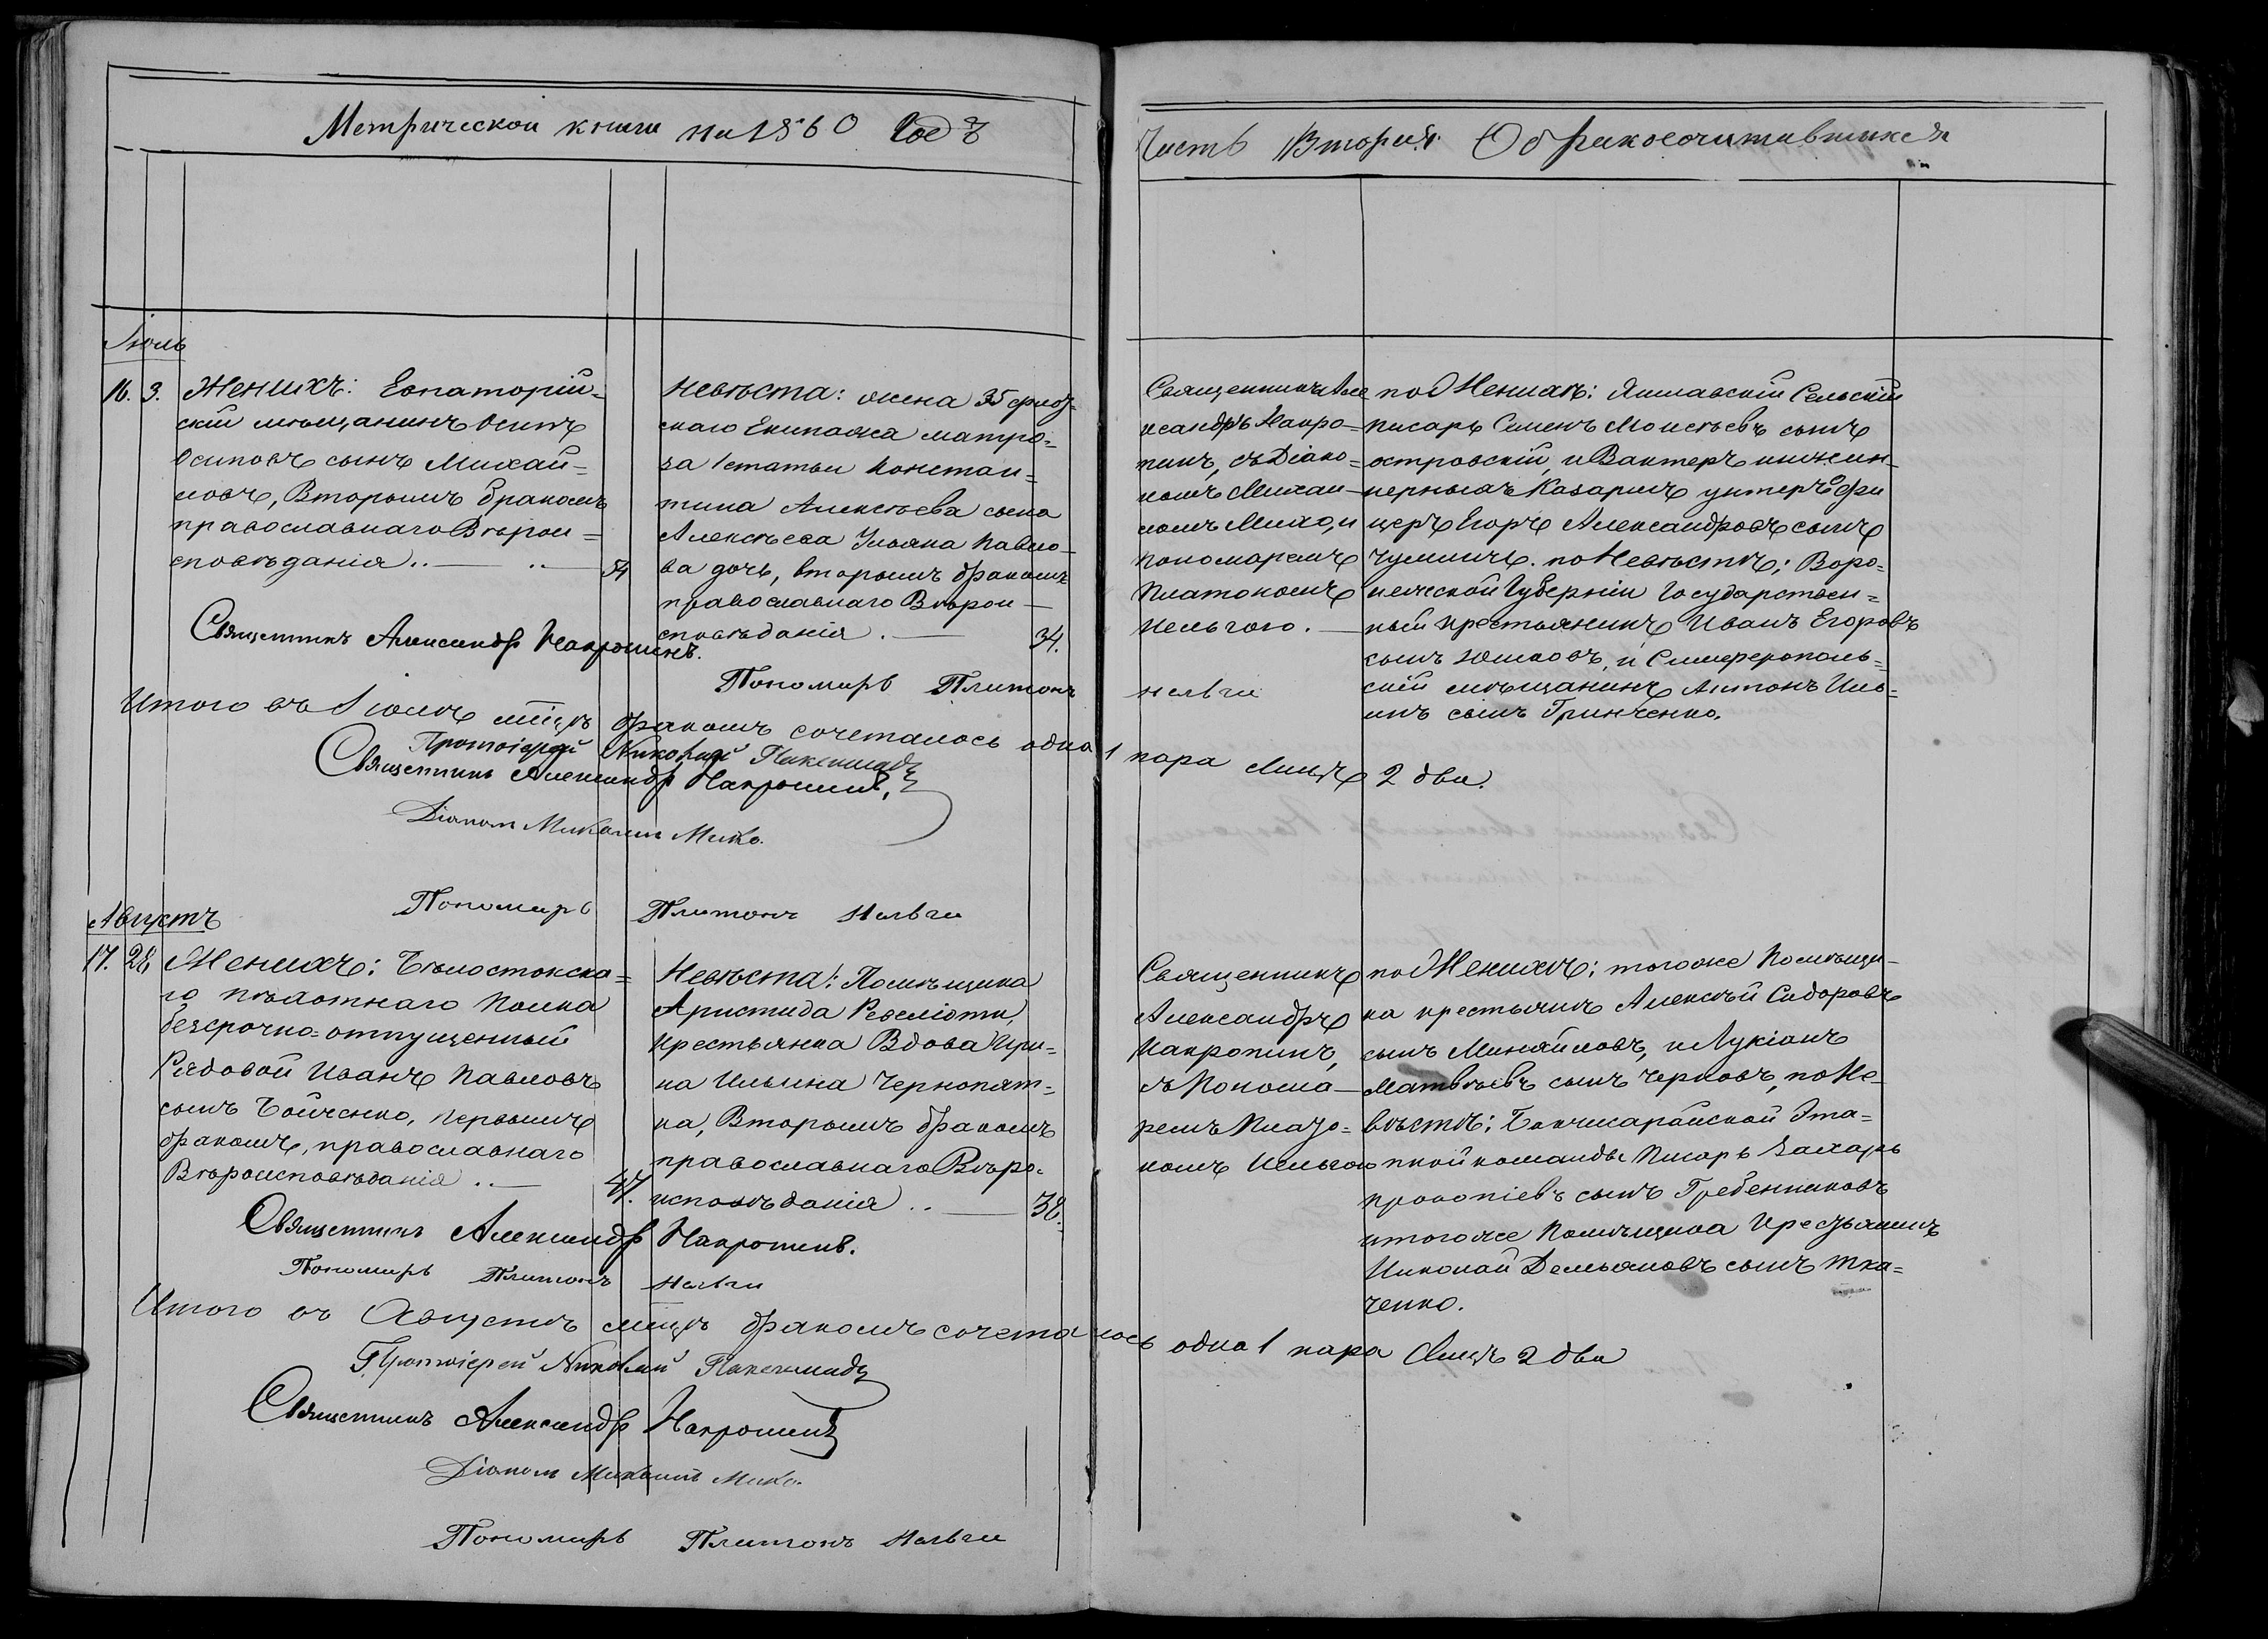 Метрической книги на 1860 годъ
Часть Вторая О бракосочитавшихся
Іюль
16. 3. Женихъ: Евпаторій=
скій мѣщанинъ Осипъ
Осиповъ сынъ Михай=
ловъ, Вторымъ бракомъ
православнаго Вѣрои=
сповѣданія .. — .. —
Невѣста: жена 35 флот=
скаго Екипажа матро=
за 1 статьи Констан=
тина Алексѣева сына
Алексѣева Ульяна Павло=
ва дочь, вторымъ бракомъ
православнаго Вѣрои—
сповѣданія. — 34.
Священникъ Александръ Накропинъ.
Пономарь Платонъ
Нельги
Священникъ Але
ксандръ Накро=
пинъ, съ Діако=
номъ Михаи—
ломъ Михо, и
Пономаремъ
Платономъ
Нельгою. —
по Женихѣ: Яшлавскій Сельскій
писарь Семенъ Моисѣевъ сынъ
островскій, и Вахтеръ инжин-
нерныхъ Казармъ унтеръ Офи
церъ Егоръ Александровъ сынъ
Чумичъ. по Невѣстѣ; Воро=
нежской Губерніи Государствен=
ный крестьянинъ Иванъ Егоровъ
сынъ Юшковъ, и Симферополь=
скій мѣщанинъ Антонъ Иль=
инъ сынъ Гринченко.
Итого въ Іюлѣ мѣсяцѣ бракомъ сочеталось одна 1 пара Лицъ 2 два.
Протоіерей Николай
Священникъ Александръ Накропинъ,
Діаконъ Михаилъ Михо.
Пономарь Платонъ Нельги
Августъ
17. 28. Женихъ: Бѣлостокска=
го пѣхотнаго Полка
безсрочно=отпущенный
Рядовой Иванъ Павловъ
сынъ Бойченко, первымъ
бракомъ, православнаго
Вѣроисповѣданія .. —
Невѣста: Помѣщика
Аристида Ревеліоти,
крестьянка Вдова Ири=
на Ильина Чернопят=
ка, Вторымъ бракомъ
православнаго Вѣро=
исповѣданія .. — 38.
Священникъ
Александръ
Накропинъ,
съ Понома—
ремъ Плато=
номъ Нельгою
по Женихѣ; тогоже Помѣщи-
ка крестьянинъ Алексѣй Сидоровъ
сынъ Михайловъ, и Лукіанъ
Матвѣевъ сынъ Черновъ, по Не-
вѣстѣ; Бахчисарайской Эта=
пной команды Писарь Захарь
прокопіевъ сынъ Гребенниковъ
итогоже Помѣщика Крестьянинъ
Николай Демьяновъ сынъ Тка=
ченко.
Священникъ Александръ Накропинъ.
Пономарь Платонъ Нельги
Итого въ Августѣ мѣсяцѣ бракомъ сочеталось одна 1 пара Лицъ 2 два
Протоіерей Николай
Священникъ Александръ Накропинъ
Діаконъ Михаилъ Михо.
Пономарь Платонъ Нельги